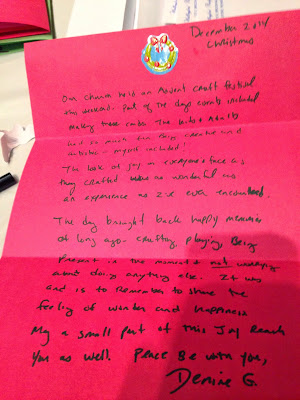 December 2014
Christmas
Our church held an Advent craft festival
this weekend. Part of the days events included
making these cards. The kids & Adults
had so much fun being creative and
artistic - myself included!
The look of joy on everyone's face as
they crafted was as wonderful as
an experience as I've ever encountered.
The day brought back happy memories
of long ago - crafting, playing, Being
Present in the moment & not worrying
about doing anything else. It was
and is to Remember to share the
feeling of wonder and happiness
May a small part of this Joy Reach
You as well. Peace Be with you,
Denise G.